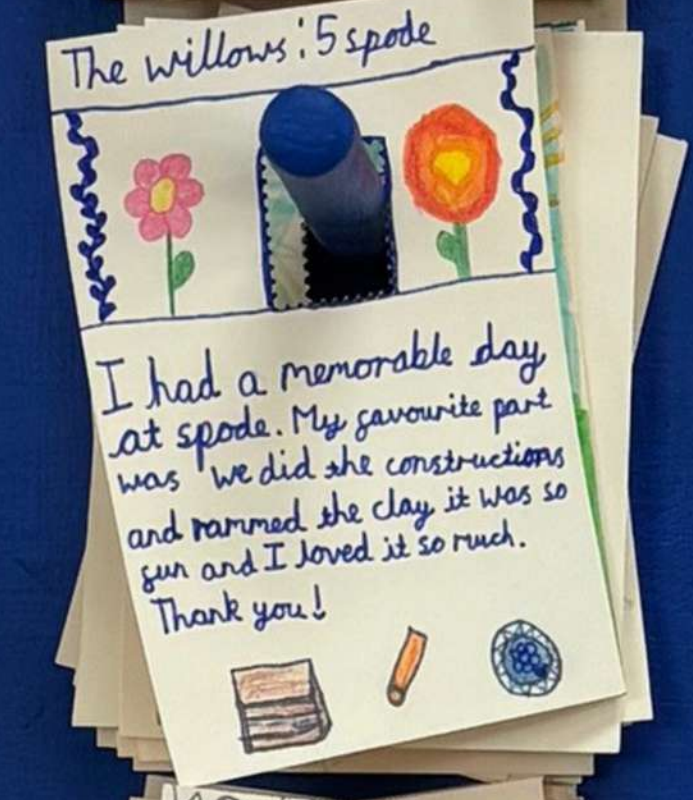 The willows: 5 spode
I had a memorable day
at spode. My favourite part
was we did the constructions
and rammed the clay it was so
fun and I loved it so much.
Thank you!